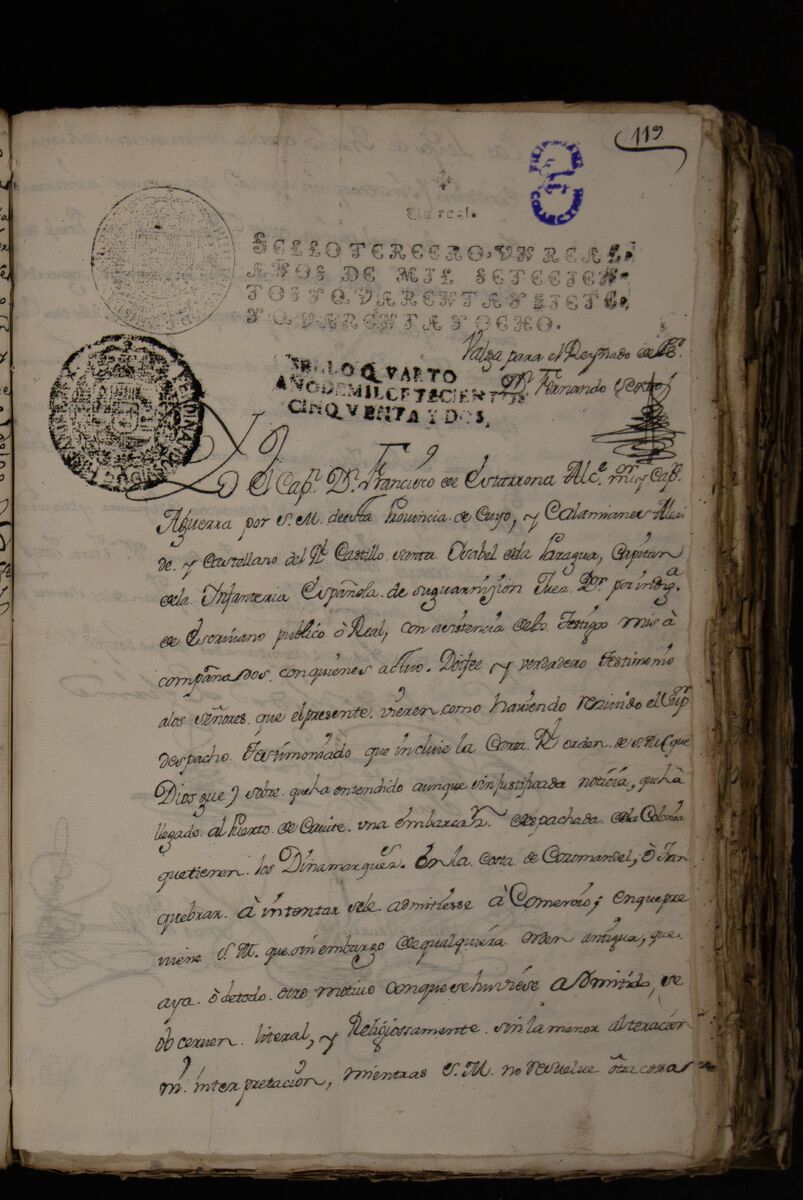 119
FILIPINIANA COLLECTION
Un real.
SELLO TERCERO, VN REAL,
AÑOS DE MIL SETECIEN-
TOS Y QVARENTA Y SIETE,
Y QVARENTA Y OCHO.
Valga para el Reynado de S.
Dn. Fernando Sexto
SELLO QVARTO
AÑO DE MIL SETECIENTOS
CINQVENTA Y DOS,
El Capn. Dn. Francisco de Estarrona Alce. mor. y Capn.
Aguerra por S. M. de esta Provincia de Cuyo, y Calamianes Alcai
de. y Castellano del Rl. Castillo santa Ysabel de la Paragua, Capitan
de la Infanteria Española de su guarnision Juez
de Escrivano publico ò Real, con asistencia de los Testigos mis à
compañados. con quienes actuo. Doi fee y verdadero testimonio
a los señores que el presente vieren como haviendo resivido el
despacho Testimoniado que incluie la Rl. orden de S. M. (que
Dios gue) sobre que ha entendido aunque sin justificada noticia, que hà
llegado al Puerto de Cavite una embarcan. despachada de la Colonia
que tienen los Dinamarqueses. En la costa de Coromandel, ò Tran
quebrar à intentar se le admitiesse à Comercio; en que pre
viene S. M. que sin embargo de qualquiera orden antigua, que
aya ò de todo otro motivo con que se huviese admitido, se
observen literal, y Religiossamente sin la menor alteracion
ni interpretacion, mientras S. M. no resuelve otra cossa